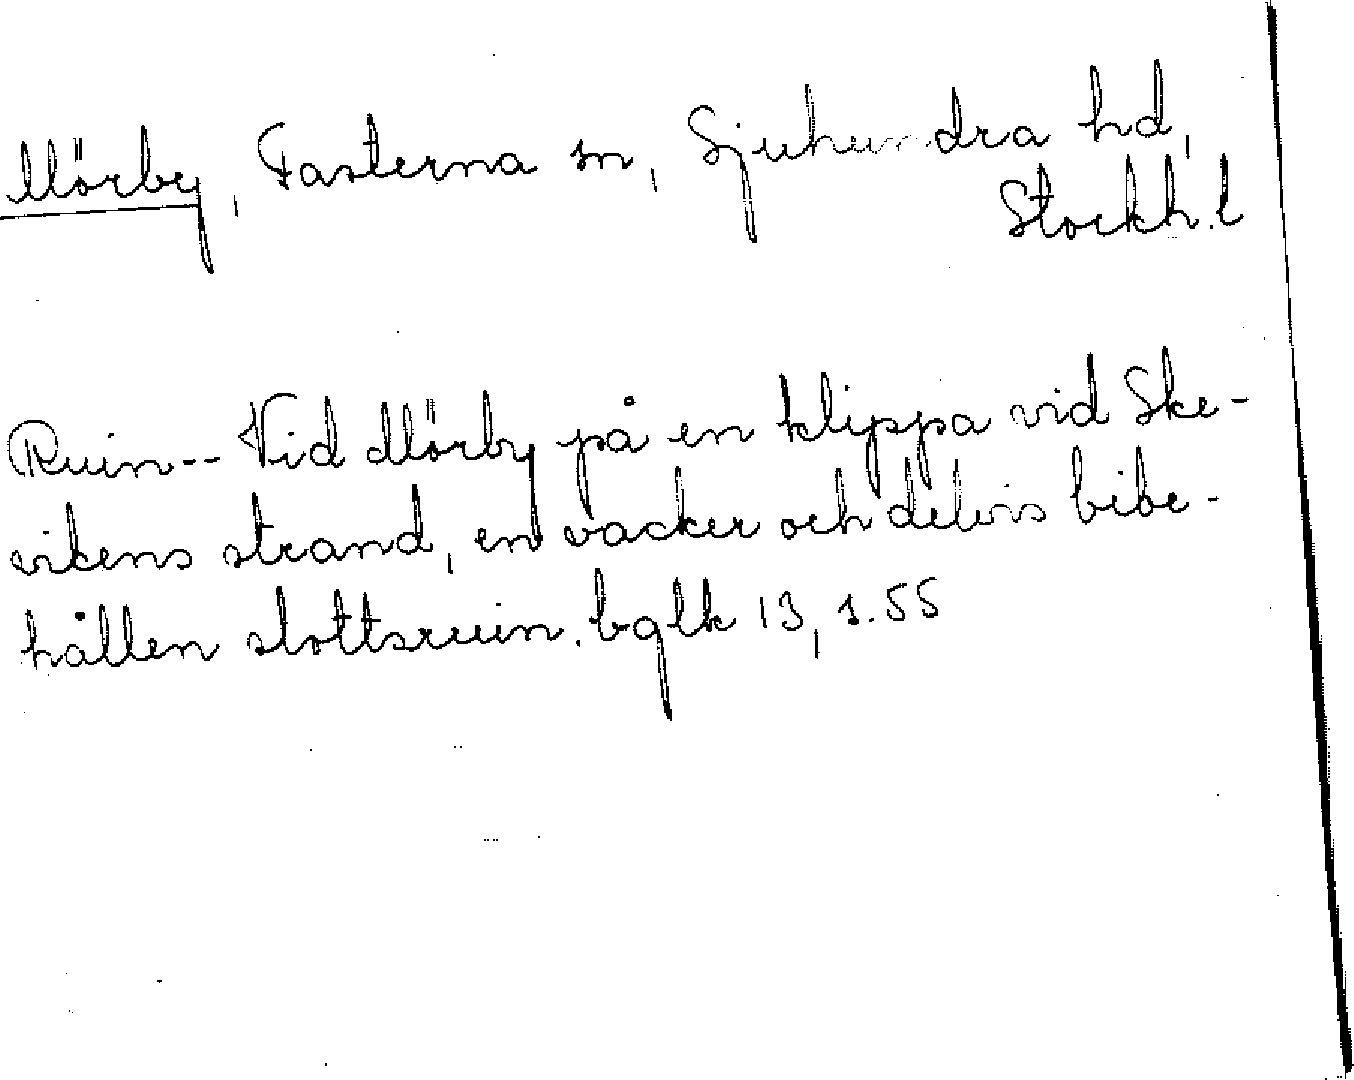 Mörby, Fasterna sn, Sjuhundra hd,
Stockh. l
Ruin-- Vid Mörby på en klippa vid Ske-
vikens strand, en vacker och delvis bibe-
hållen slottsruin. bglk 13, s. 55